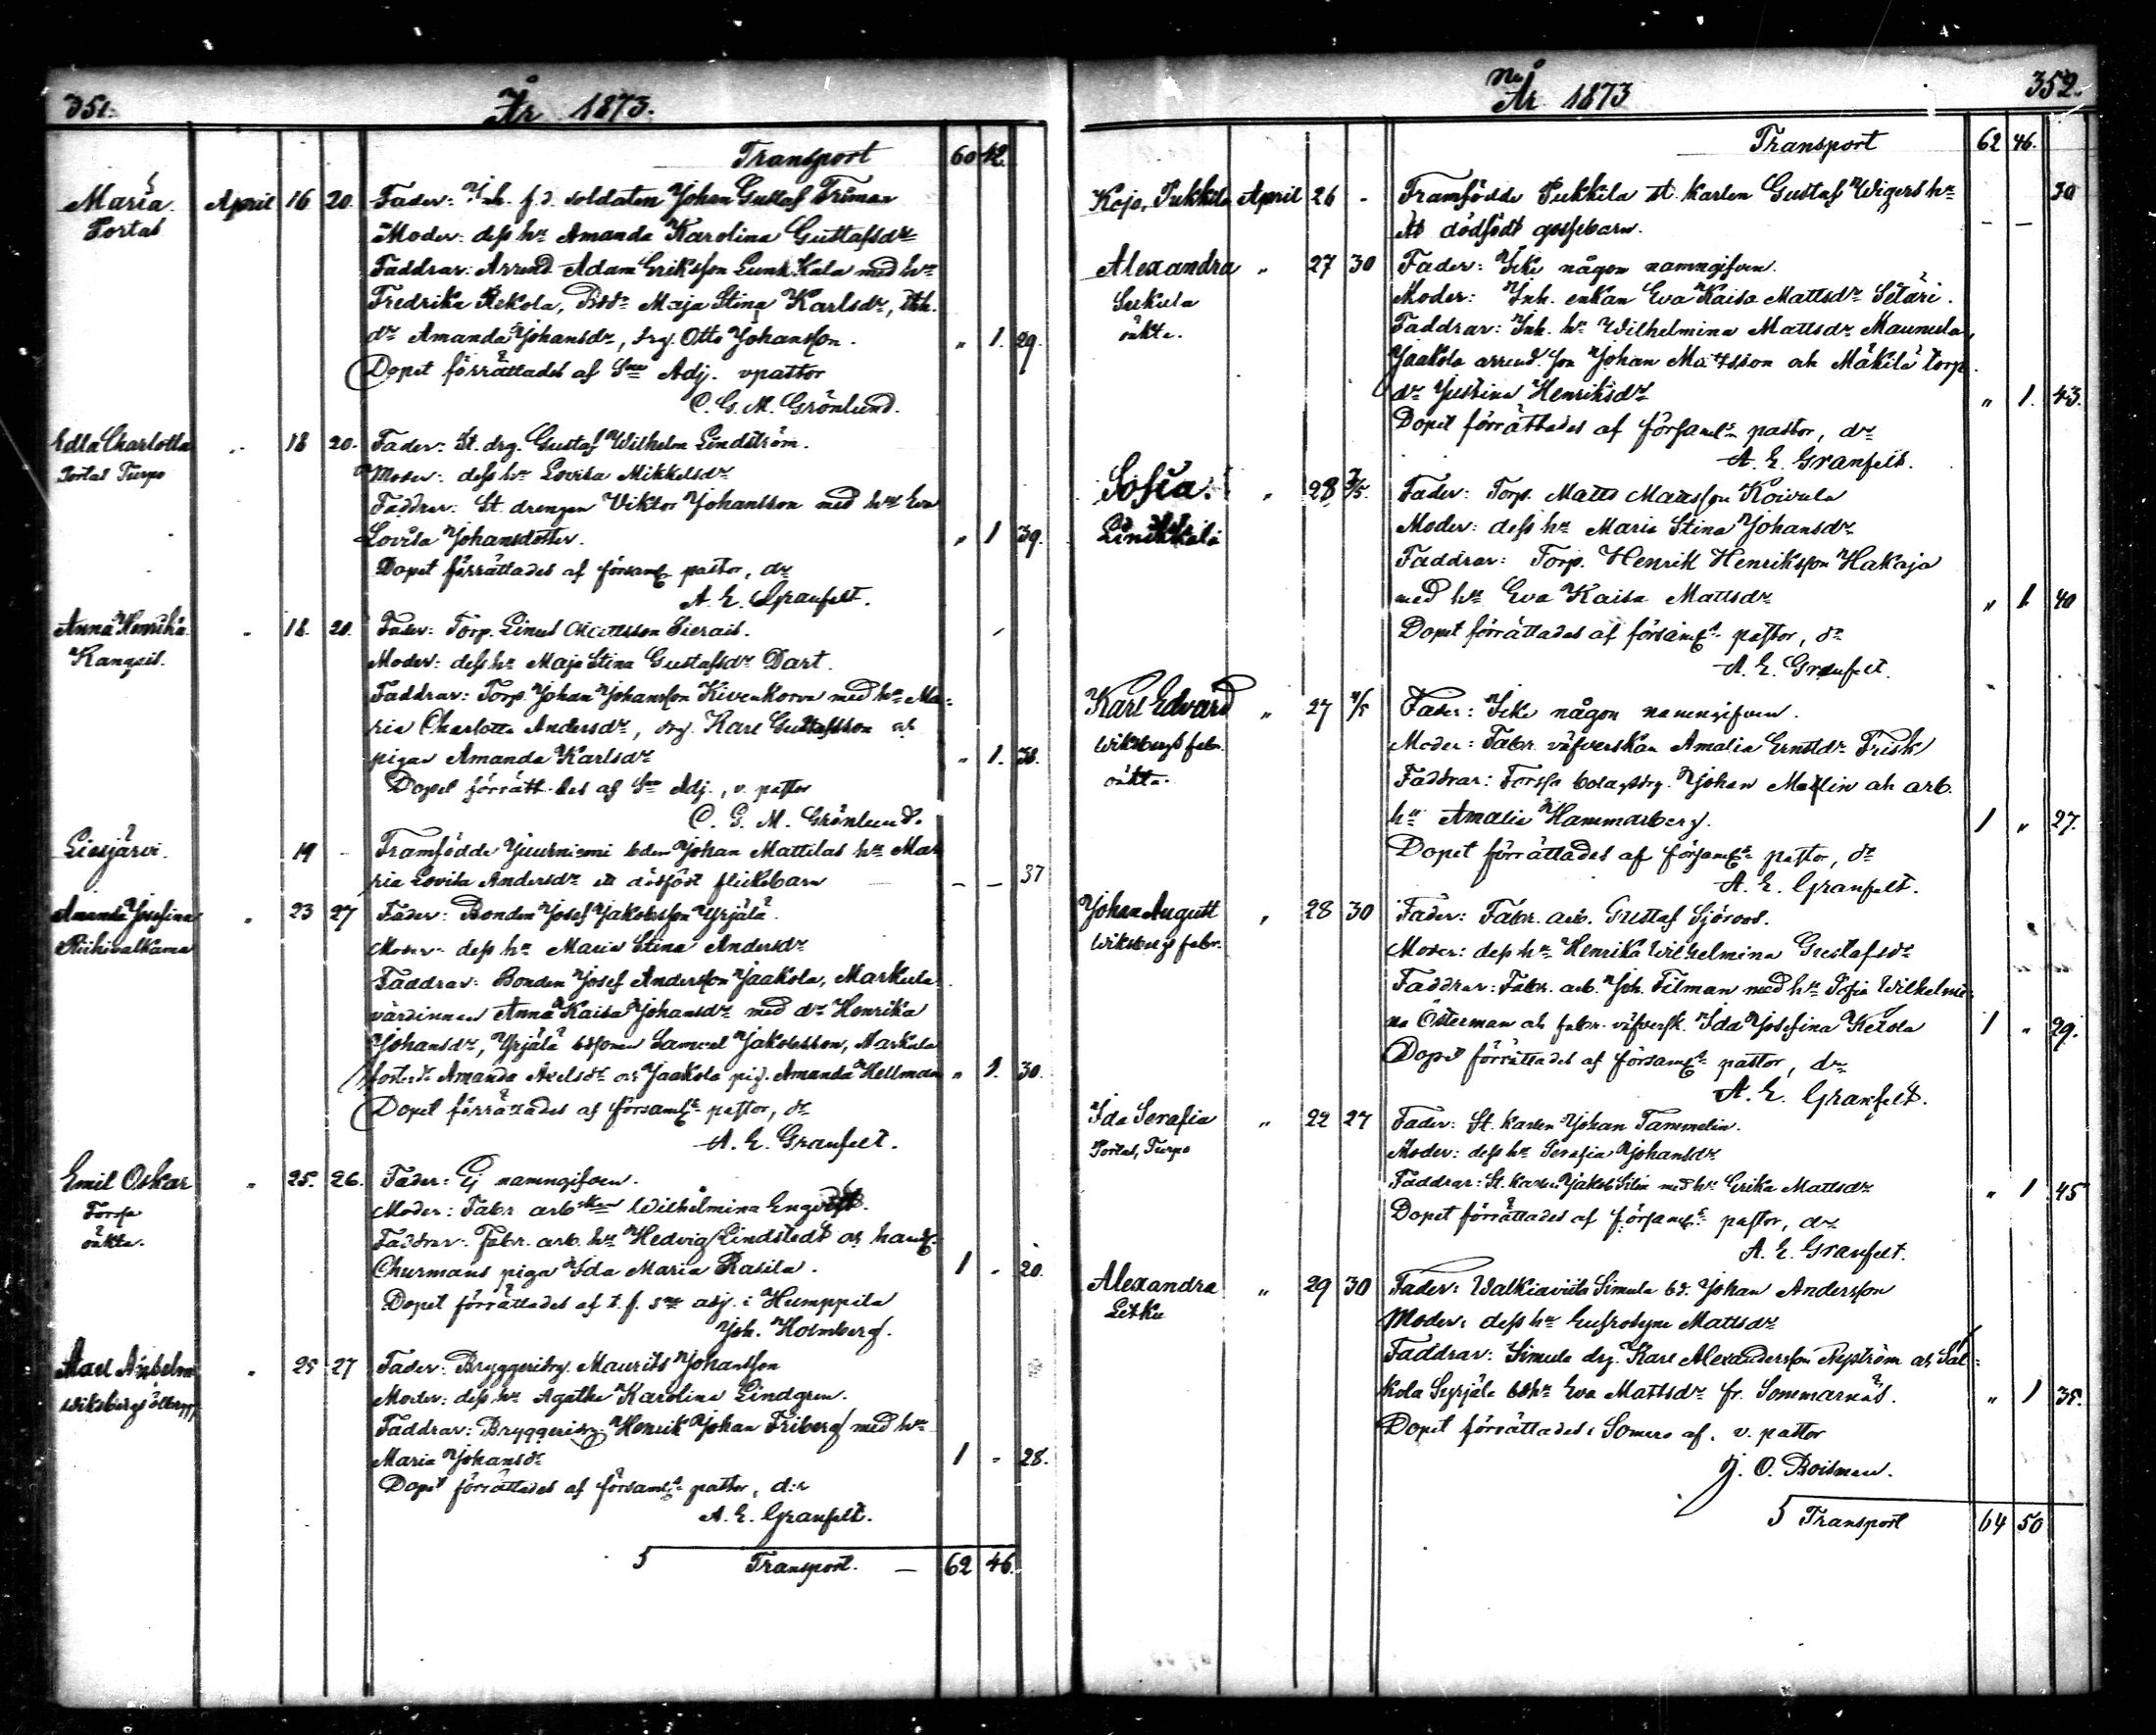 351. År 1873.
Transport 60 42.
Maria. April 16 20. Fader: Inh. f.d. soldaten Johan Gustaf Friman
Portas Moder: dess hu Amanda Karolina Gustafsdr
Faddrar: Arrend. Adam Eriksson Lunkkala med hu
Fredrika Rekola, Maja Stina Karlsdr, Inh.
dr Amanda Johansdr, drg. Otto Johansson. " 1. 29.
Dopet förrättades af Sne Adj. vpastor
C. G. M. Grönlund.
Edla Charlotta " 18 20. Fader: St. drg. Gustaf Wilhelm Lindström.
Portas Turpo Moder: dess hu Lovisa Mikkelsdr
Faddrar: St. drengen Viktor Johansson med hu Eva
Lovisa Johansdotter. " 1 39.
Dopet förrättades af församl. pastor, dr
A. E. Granfelt.
Anna Henrika " 18. 20. Fader: Torp. Linus Mattsson Sierais.
Kangais. Moder: dess hu Maja Stina Gustafsdr Dart.
Faddrar: Torp. Johan Johansson Kivenkorva med hu Ma-
ria Charlotta Andersdr, drg. Karl Gustafsson o.
pigan Amanda Karlsdr " 1. 38.
Dopet förrättades af Sne Adj., v. pastor
C. G. M. Grönlund.
Liesjärvi. 19 - Framfödde Juurniemi bden Johan Mattilas hu Ma-
ria Lovisa Andersdr ett dödfödt flickebarn — — 37
Amanda Josefina " 23 27 Fader: Bonden Josef Jakobsson Yrjälä.
Riihivalkama Moder: dess hu Maria Stina Andersdr
Faddrar: Bonden Josef Andersson Jaakola, Markula
värdinnan Anna Kaisa Johansdr med dr Henrika
Johansdr, Yrjälä bdsonen Samuel Jakobsson, Markula
fosterdr Amanda Axelsdr o. Jaakola pig. Amanda Hellman " 1. 30.
Dopet förrättades af församl. pastor, dr
A. E. Granfelt.
Emil Oskar " 25. 26. Fader: Ej namngifven.
Forssa Moder: Fabr. arbskan Wilhelmina Engqvist.
oäkta. Faddrar: Fabr. arb. hu Hedvig Lindstedt o. handl.
Churmans piga Ida Maria Rasila. 1 " 20.
Dopet förrättades af t. f. sne adj. i Humppila
Joh. Holmberg.
Axel Anselm " 25 27 Fader: Bryggeridrg. Maurits Johansson
Wiksbergs ölbrygg. Moder: dess hu Agatha Karolina Lindgren.
Faddrar: Bryggeridrg. Henrik Johan Friberg med hu
Maria Johansdr 1 " 28.
Dopet förrättades af församl. pastor, d:r
A. E. Granfelt.
5 Transport. — 62 46.
År 1873 352.
Transport 62 46.
Kojo, Pukkila April 26 - Framfödde Pukkila st. karlen Gustaf Wigers hu 30
ett dödfödt gossebarn. — —
Alexandra " 27 30 Fader: Icke någon namngifven.
Sukula Moder: Inh. enkan Eva Kaisa Mattsdr Sëtäri.
oäkta. Faddrar: Inh. hu Wilhelmina Mattsdr Maunula,
Jaakola arrend. son Johan Mattsson och Mäkilä torp.
dr Justina Henriksdr " 1. 43.
Dopet förrättades af församl. pastor, dr
A. E. Granfelt.
Sofia. " 28 3/5. Fader: Torp. Matts Mattsson Koivula
Linikkala Moder: dess hu Maria Stina Johansdr
Faddrar: Torp. Henrik Henriksson Hakaja
med hu Eva Kaisa Mattsdr " 1. 40
Dopet förrättades af församl. pastor, dr
A. E. Granfelt.
Karl Edvard " 27 4/5 Fader: Icke någon namngifven.
Wiksbergs fabr. Moder: Fabr. väfverskan Amalia Ernstdr Frisk
oäkta. Faddrar: Forssa bolagsdrg. Johan Malin och arb.
hu Amalia Hammarberg. 1 " 27.
Dopet förrättades af församl. pastor, dr
A. E. Granfelt.
Johan August " 28 30 Fader: Fabr. arb. Gustaf Sjöroos.
Wiksbergs fabr. Moder: dess hu Henrika Wilhelmina Gustafsdr
Faddrar: Fabr. arb. Joh. Filman med hu Sofia Wilhelmi-
na Österman och fabr. väfversk. Ida Josefina Ketola 1 " 29.
Dopet förrättades af församl. pastor, dr
A. E. Granfelt.
Ida Serafia " 22 27 Fader: St. karlen Johan Tammelin.
Portas, Turpo Moder: dess hu Serafia Johansdr
Faddrar: St. karlen Jakob Silin med hu Erika Mattsdr " 1 45
Dopet förrättades af församl. pastor, dr
A. E. Granfelt.
Alexandra " 29 30 Fader: Walkiaviita Simula bd. Johan Andersson
Letku Moder: dess hu Eufrosyne Mattsdr
Faddrar: Simula drg. Karl Alexandersson Nyström och Sal-
kola Syrjälä bdhu Eva Mattsdr fr. Sommarnäs. " 1 35.
Dopet förrättades i Somero af v. pastor
J. O. Boisman.
5 Transport 64 50